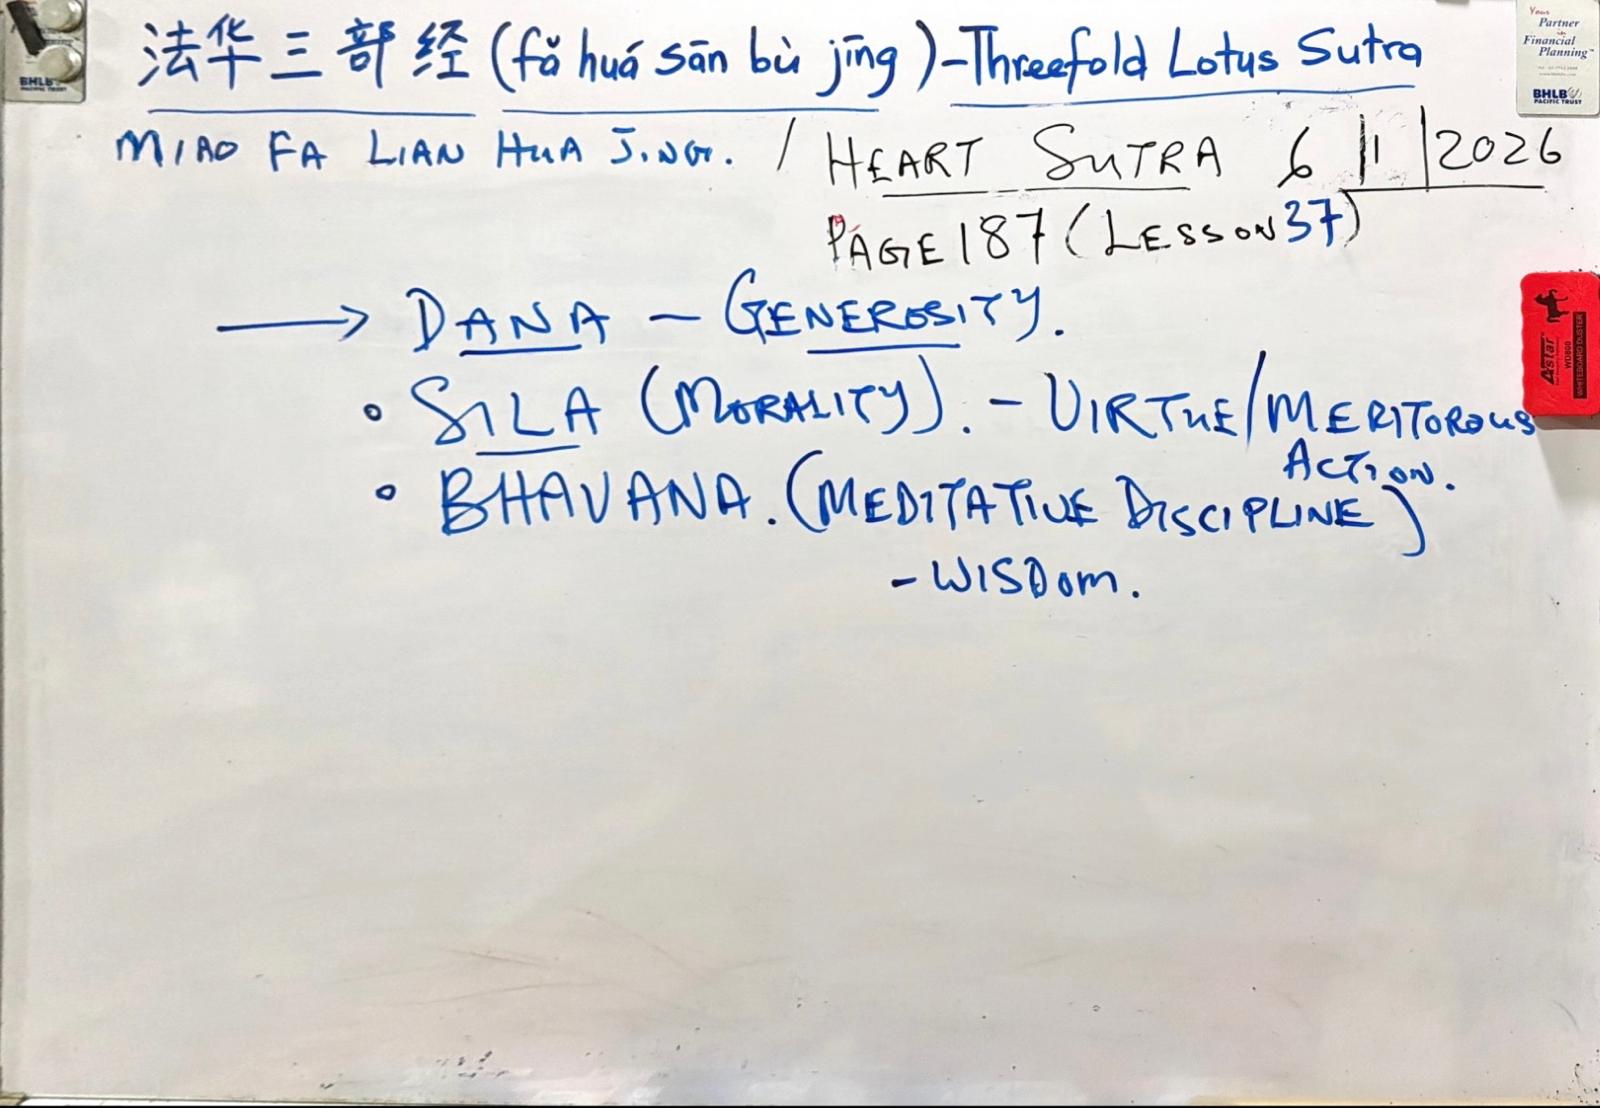 法华三部经 (fǎ huá sān bù jīng) - Threefold Lotus Sutra
MIAO FA LIAN HUA JING. / HEART SUTRA 6/1/2026
PAGE 187 (LESSON 37)
→ DANA - GENEROSITY.
• SILA (MORALITY). - VIRTUE/MERITOROUS
ACTION.
• BHAVANA. (MEDITATIVE DISCIPLINE)
- WISDOM.
BHLB
PACIFIC TRUST
Your
Partner
in
Financial
Planning
BHLB
PACIFIC TRUST
Astar
WHITEBOARD DUSTER